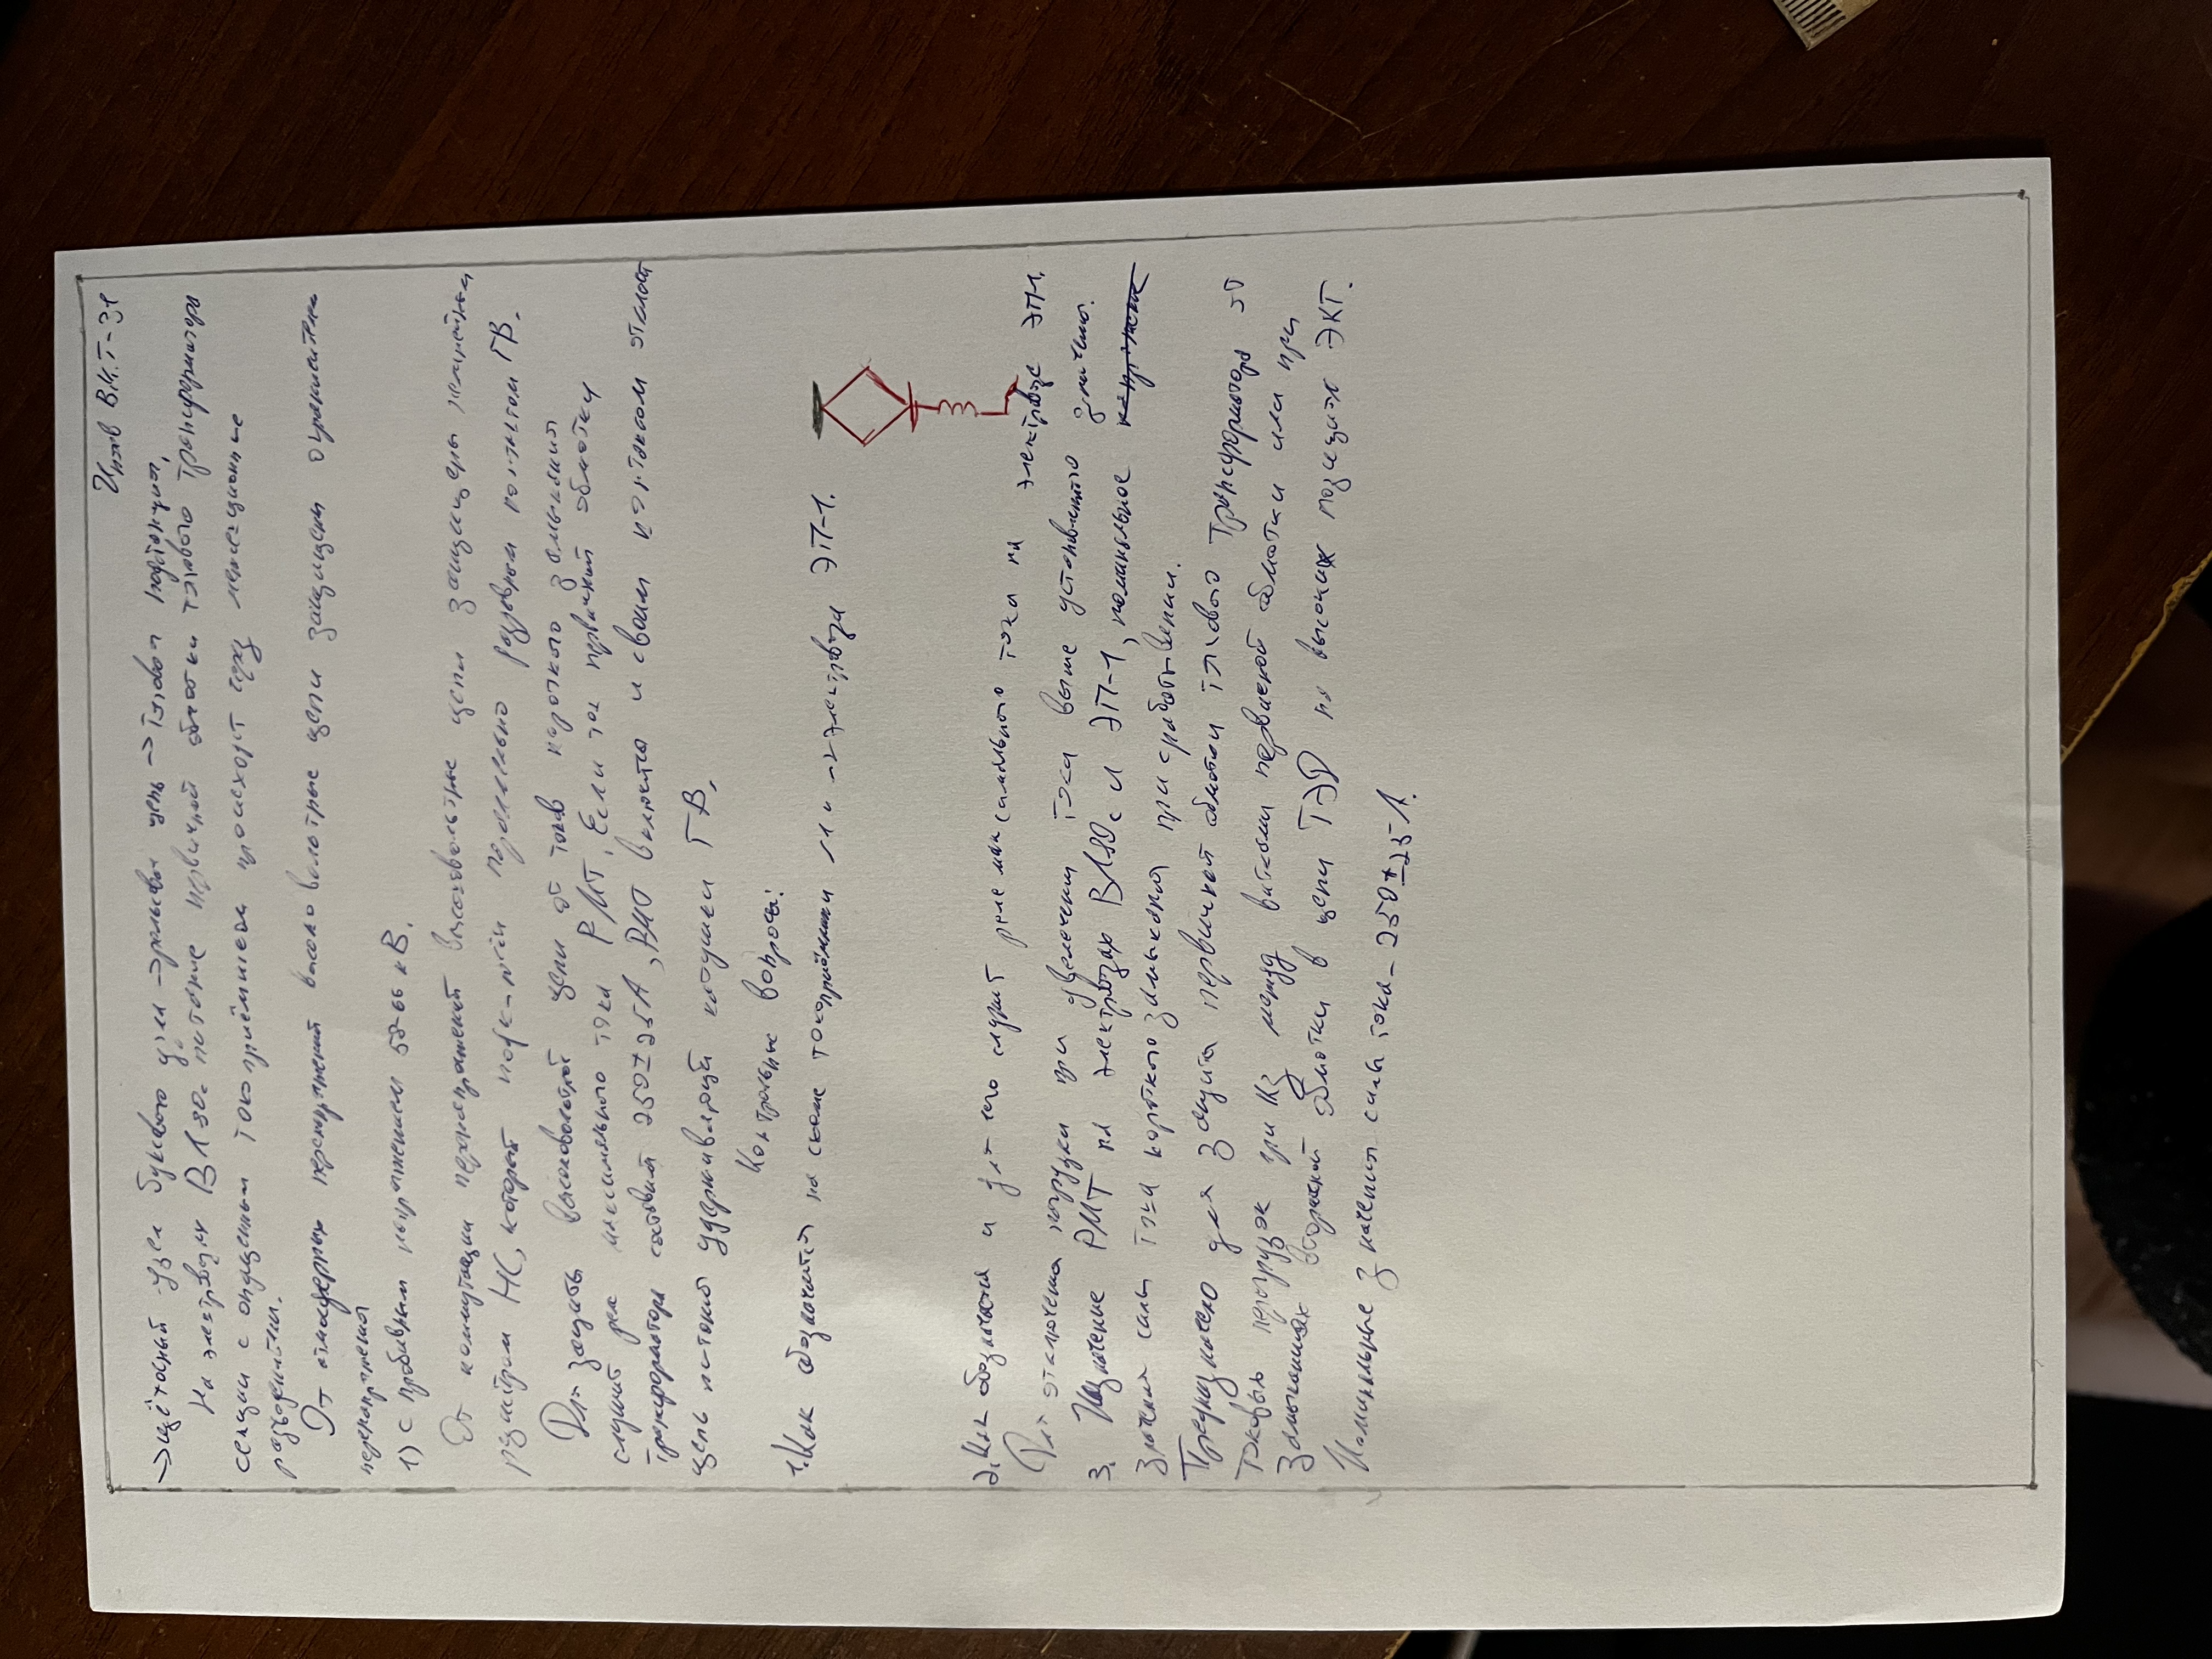 В.К.Т-31
→ щёточный узел буксового узла → рельсовая цепь → тяговая подстанция.
На электровозе ВЛ80с питание первичной обмотки тягового трансформатора
секции с опущенным токоприёмником происходит через межсекционные
разъединители.
От атмосферных перенапряжений высоковольтные цепи защищены ограничителем
перенапряжения
1) с пробивным напряжением 58-66 кВ.
От коммутации перенапряжений высоковольтные цепи защищены нелинейным
резистором НС, который подключён параллельно разрывным контактом ГВ.
Для защиты высоковольтной цепи от токов короткого замыкания
служит реле максимального тока РМТ. Если ток первичной обмотки
трансформатора составит 250±25А, РМТ включится и своим контактом отключит
цепь питания удерживающей катушки ГВ.
Контрольные вопросы:
1. Как обозначается на схеме токоприёмники электровоза ЭП-1.
2. Как обозначается и для чего служит реле максимального тока на электровозе ЭП-1.
Для отключения нагрузки при увеличении тока выше установленного значения.
3. Назначение РМТ на электровозах ВЛ80с и ЭП-1, номинальное
значения силы тока короткого замыкания при срабатывании.
Предназначено для защиты первичной обмотки тягового трансформатора от
токовых перегрузок при КЗ между витками первичной обмотки или при
замыканиях вторичной обмотки в цепи ТЭД на высоких позициях ЭКГ.
Номинальные значения силы тока - 250±25А.